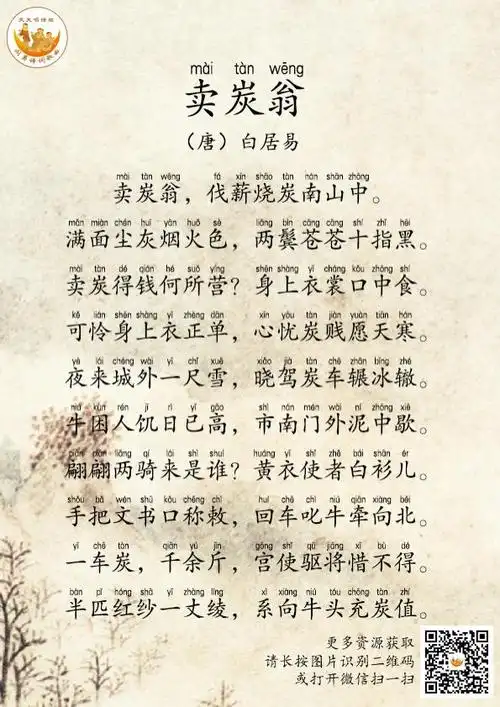 天天唱诗班
尚勇诗词歌曲
mài tàn wēng
卖炭翁
（唐）白居易
mài tàn wēng fá xīn shāo tàn nán shān zhōng
卖炭翁，伐薪烧炭南山中。
mǎn miàn chén huī yān huǒ sè liǎng bìn cāng cāng shí zhǐ hēi
满面尘灰烟火色，两鬓苍苍十指黑。
mài tàn dé qián hé suǒ yíng shēn shàng yī cháng kǒu zhōng shí
卖炭得钱何所营？身上衣裳口中食。
kě lián shēn shàng yī zhèng dān xīn yōu tàn jiàn yuàn tiān hán
可怜身上衣正单，心忧炭贱愿天寒。
yè lái chéng wài yì chǐ xuě xiǎo jià tàn chē zhǎn bīng zhé
夜来城外一尺雪，晓驾炭车辗冰辙。
niú kùn rén jī rì yǐ gāo shì nán mén wài ní zhōng xiē
牛困人饥日已高，市南门外泥中歇。
piān piān liǎng qí lái shì shuí huáng yī shǐ zhě bái shān ér
翩翩两骑来是谁？黄衣使者白衫儿。
shǒu bǎ wén shū kǒu chēng chì huí chē chì niú qiān xiàng běi
手把文书口称敕，回车叱牛牵向北。
yì chē tàn qiān yú jīn gōng shǐ qū jiāng xī bù dé
一车炭，千余斤，宫使驱将惜不得。
bàn pǐ hóng shā yí zhàng líng xì xiàng niú tóu chōng tàn zhí
半匹红纱一丈绫，系向牛头充炭值。
更多资源获取
请长按图片识别二维码
或打开微信扫一扫